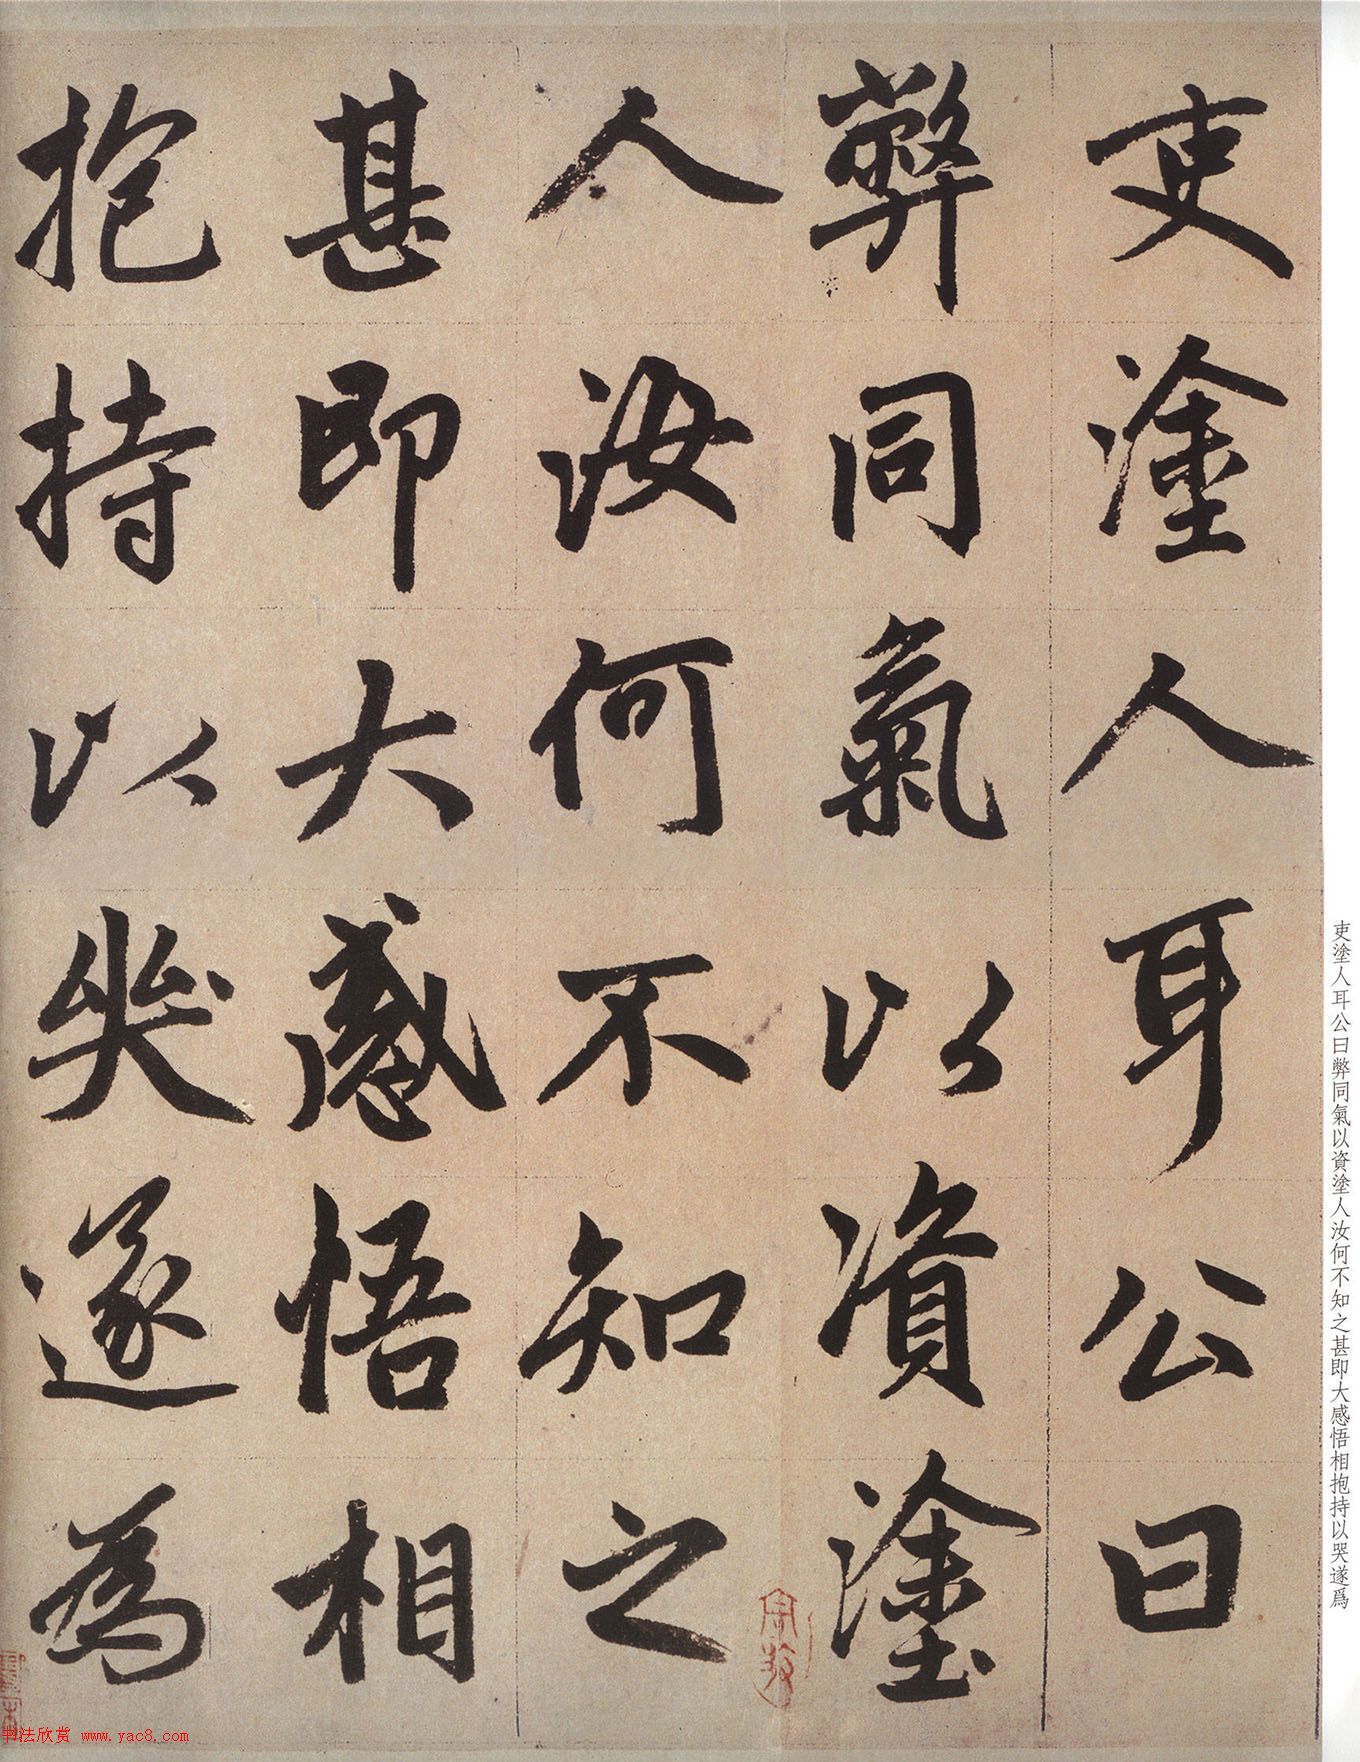 吏塗人耳公曰
弊同氣以資塗
人汝何不知之
甚即大感悟相
抱持以哭遂為
吏塗人耳公曰弊同氣以資塗人汝何不知之甚即大感悟相抱持以哭遂爲
书法欣赏 www.yac8.com